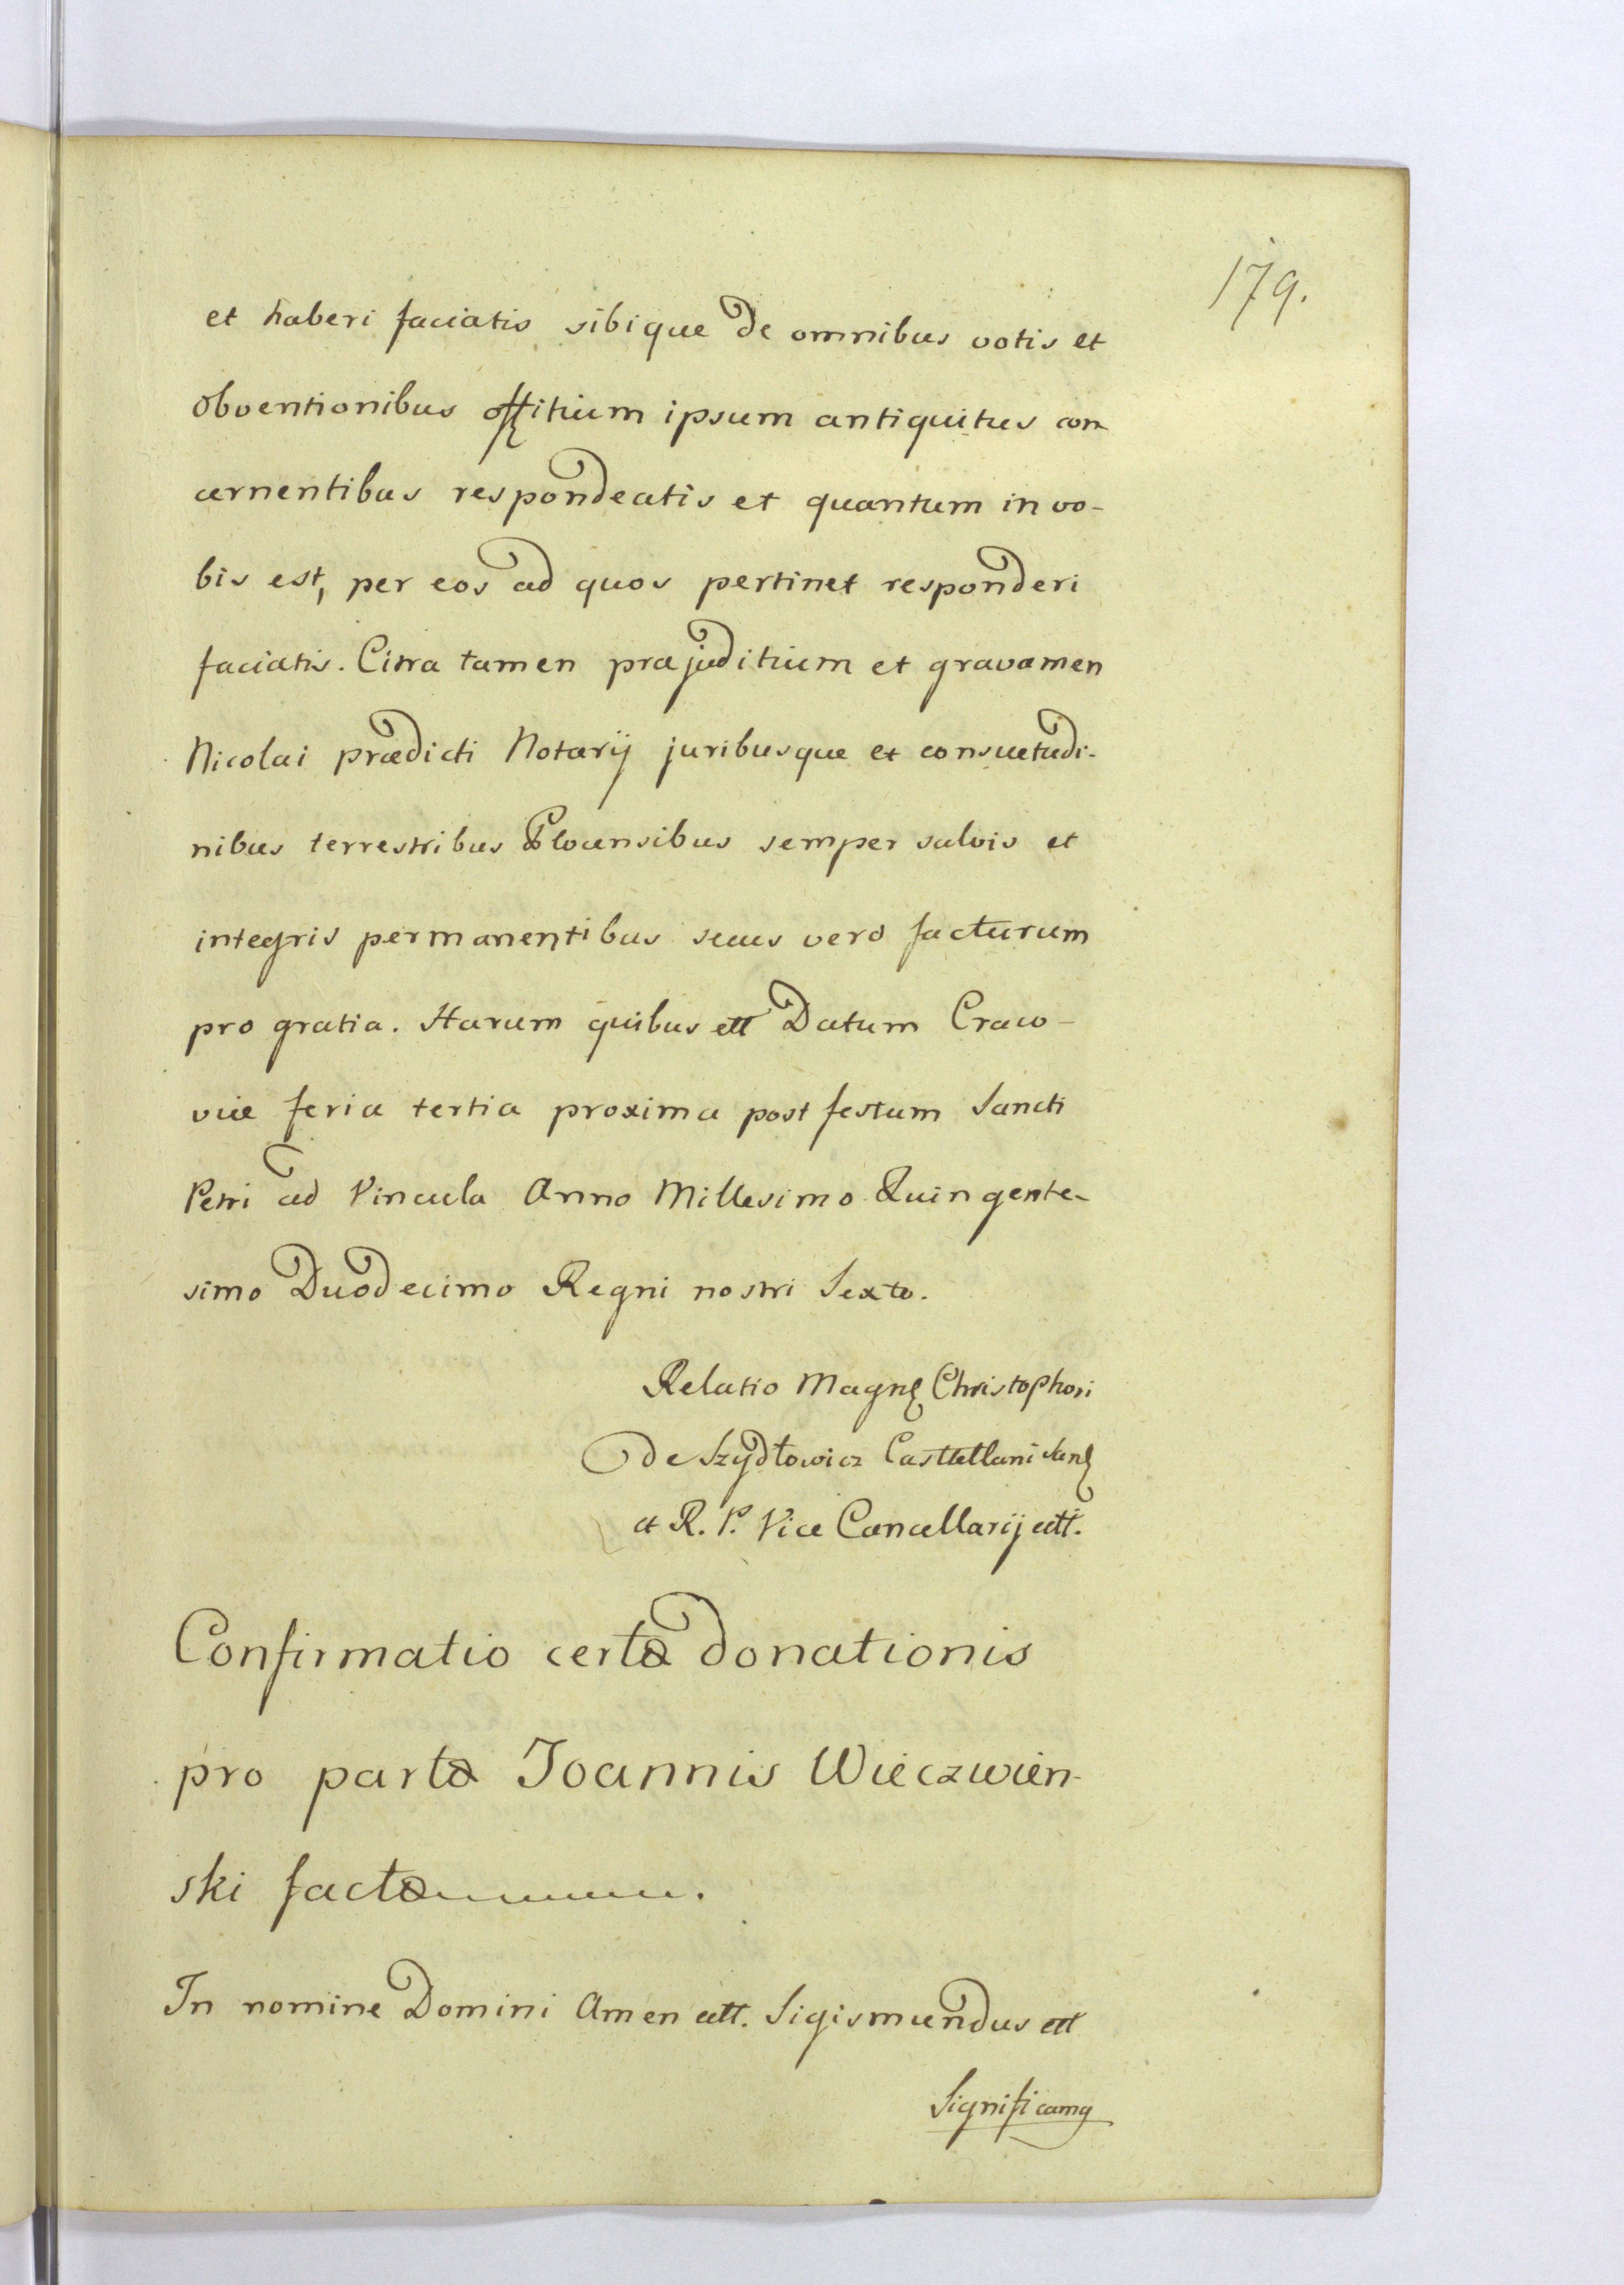 179.
et haberi faciatis sibique de omnibus votis et
obventionibus offitium ipsum antiquitus con
cernentibus respondeatis et quantum in vo-
bis est, per eos ad quos pertinet responderi
faciatis. Citra tamen præjuditium et gravamen
Nicolai prædicti Notarij juribusque et consuetudi-
nibus terrestribus Plocensibus semper salvis et
integris permanentibus secus vero facturum
pro gratia. Harum quibus ett Datum Craco-
viæ feria tertia proxima post festum Sancti
Petri ad Vincula Anno Millesimo Quingente-
simo Duodecimo Regni nostri Sexto.
Relatio Magn Christophori
de Szydłowicz Casttellani San
et R. P. Vice Cancellarij ett.
Confirmatio certæ donationis
pro parte Joannis Wieczwien-
ski factæ.
In nomine Domini Amen ett. Sigismundus ett
Significamq